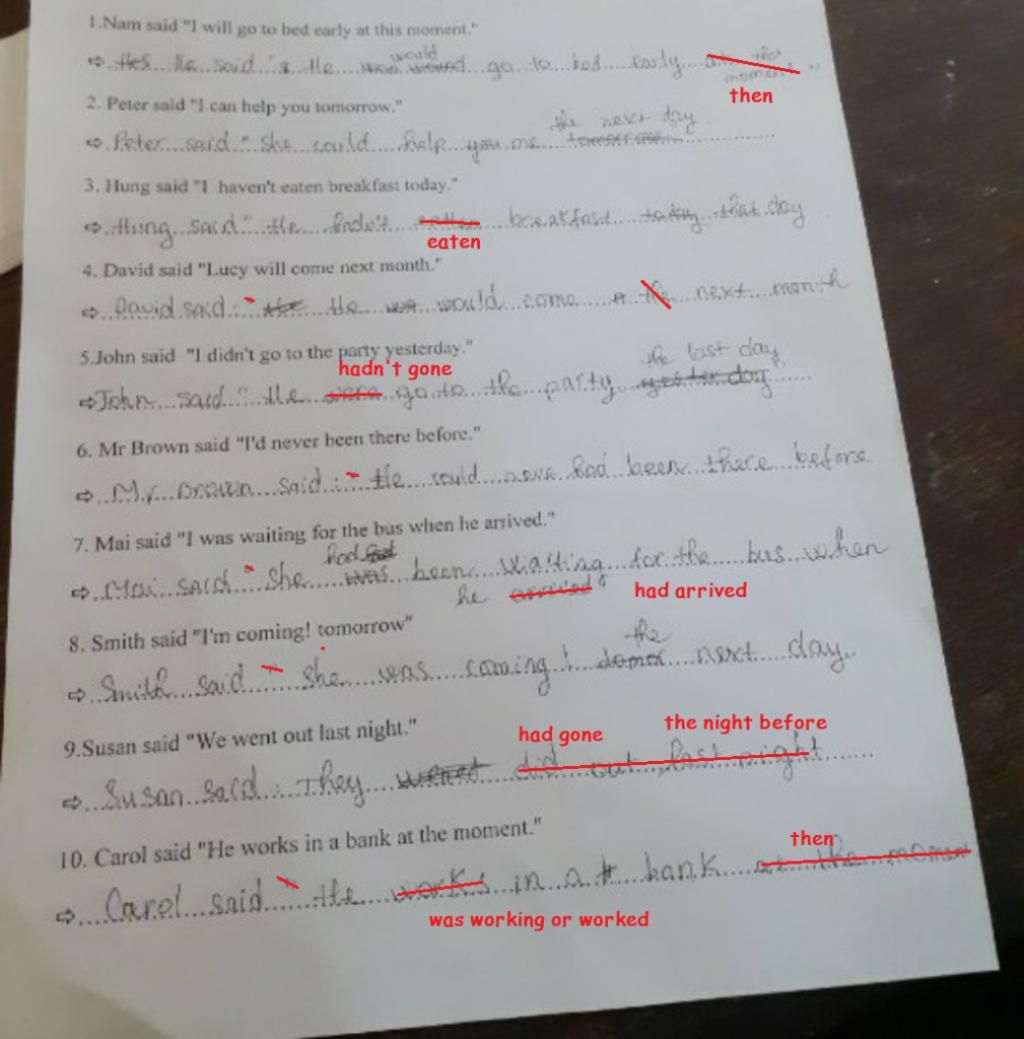 1.Nam said "I will go to bed early at this moment."
would
⇨ He said " He go to bed early at this
moment "
then
2. Peter said "I can help you tomorrow."
the next day
⇨ Peter said " She could help you me tomorrow
3. Hung said "I haven't eaten breakfast today."
⇨ Hung said " He hadn't breakfast today that day
eaten
4. David said "Lucy will come next month."
⇨ David said : He would come the next month
5.John said "I didn't go to the party yesterday."
hadn't gone the last day
⇨ John said " He were go to the party yesterday "
6. Mr Brown said "I'd never been there before."
⇨ Mr Brown said : He could had been there before
7. Mai said "I was waiting for the bus when he arrived."
had
⇨ Mai said " She was been waiting for the bus when
he arrived " had arrived
8. Smith said "I'm coming! tomorrow"
the
⇨ Smith said She was coming ! next day
9.Susan said "We went out last night."
had gone the night before
⇨ Susan said : They did out last night
10. Carol said "He works in a bank at the moment."
then
⇨ Carol said He works in a bank at the moment
was working or worked